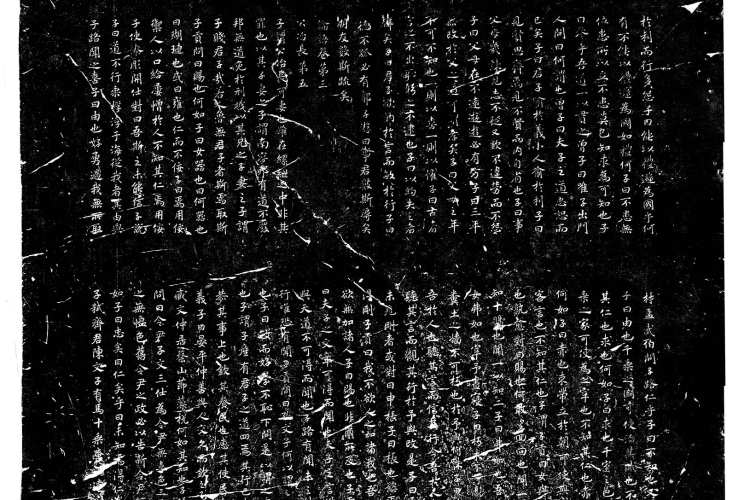 於利而行多怨子曰能以禮讓為國乎何
有不能以禮讓為國如禮何子曰不患無
位患所以立不患莫己知求為可知也子
曰參乎吾道一以貫之曾子曰唯子出門
人問曰何謂也曾子曰夫子之道忠恕而
已矣子曰君子喻於義小人喻於利子曰
見賢思齊焉見不賢而內自省也子曰事
父母幾諫見志不從又敬不違勞而不怨
子曰父母在不遠遊遊必有方子曰三年
無改於父之道可謂孝矣子曰父母之年
不可不知也一則以喜一則以懼子曰古者
言之不出恥躬之不逮也子曰以約失之者
鮮矣子曰君子欲訥於言而敏於行子曰
德不孤必有鄰子游曰事君數斯辱矣
朋友數斯疏矣
論語卷第三
公冶長第五
子謂公冶長可妻也雖在縲絏之中非其
罪也以其子妻之子謂南容邦有道不廢
邦無道免於刑戮以其兄之子妻之子謂
子賤君子哉若人魯無君子者斯焉取斯
子貢問曰賜也何如子曰女器也曰何器也
曰瑚璉也或曰雍也仁而不佞子曰焉用佞
禦人以口給屢憎於人不知其仁焉用佞
子使漆雕開仕對曰吾斯之未能信子說
子曰道不行乘桴浮于海從我者其由與
子路聞之喜子曰由也好勇過我無所取
材孟武伯問子路仁乎子曰不知也又
子曰由也千乘之國可使治其賦也不
其仁也求也何如子曰求也千室之邑
乘之家可使為之宰也不知其仁也赤
何如子曰赤也束帶立於朝可使與
客言也不知其仁也子謂子貢曰女與
也孰愈對曰賜也何敢望回回也聞
知十賜也聞一以知二子曰弗如也吾
女弗如也宰予晝寢子曰朽木不可
糞土之牆不可杇也於予與何誅子
吾於人也聽其言而信其行今吾於人
聽其言而觀其行於予與改是子曰
未見剛者或對曰申棖子曰棖也慾
得剛子貢曰我不欲人之加諸我也吾
欲無加諸人子曰賜也非爾所及也子
曰夫子之文章可得而聞也夫子之言
與天道不可得而聞也子路有聞未之
行唯恐有聞子貢問曰孔文子何以謂
也子曰敏而好學不恥下問是以謂
也子謂子產有君子之道四焉其行己
恭其事上也敬其養民也惠其使民
義子曰晏平仲善與人交久而敬
臧文仲居蔡山節藻梲何如其知也
問曰令尹子文三仕為令尹無喜色三
之無慍色舊令尹之政必以告新令尹
如子曰忠矣曰仁矣乎曰未知焉得仁
子弒齊君陳文子有馬十乘棄而